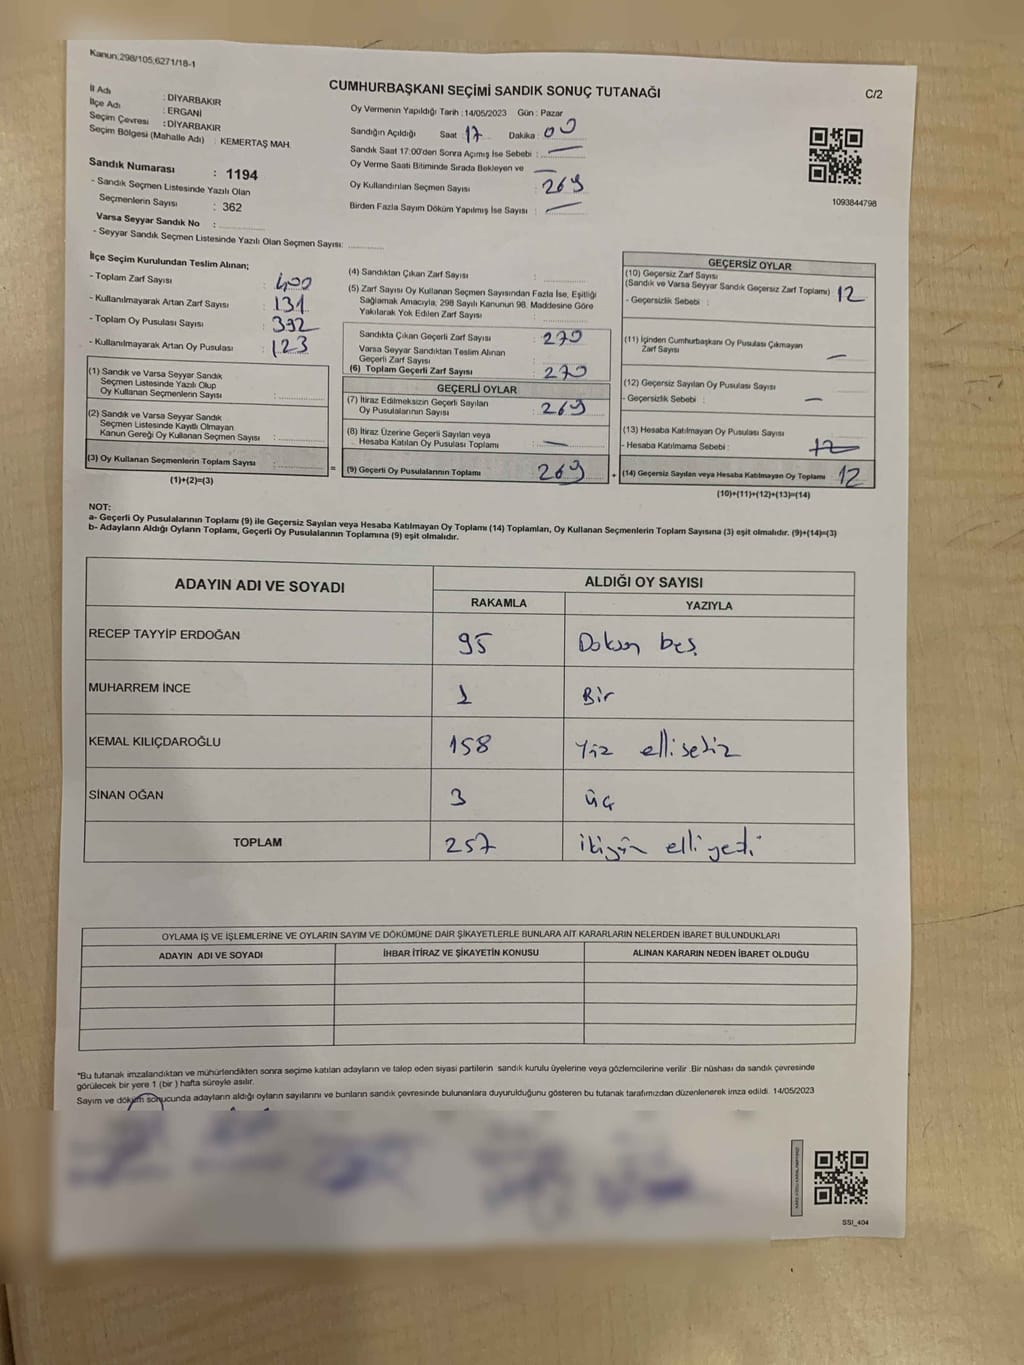 Kanun;298/105;6271/18-1
CUMHURBAŞKANI SEÇİMİ SANDIK SONUÇ TUTANAĞI
C/2
İl Adı : DİYARBAKIR
İlçe Adı : ERGANİ
Seçim Çevresi : DİYARBAKIR
Seçim Bölgesi (Mahalle Adı) : KEMERTAŞ MAH.
Sandık Numarası : 1194
- Sandık Seçmen Listesinde Yazılı Olan
Seçmenlerin Sayısı : 362
Varsa Seyyar Sandık No :
- Seyyar Sandık Seçmen Listesinde Yazılı Olan Seçmen Sayısı:
Oy Vermenin Yapıldığı Tarih :14/05/2023 Gün : Pazar
Sandığın Açıldığı Saat : 17 Dakika : 00
Sandık Saat 17:00'den Sonra Açımış İse Sebebi : —
Oy Verme Saati Bitiminde Sırada Bekleyen ve —
Oy Kullandırılan Seçmen Sayısı : 269
Birden Fazla Sayım Döküm Yapılmış İse Sayısı : —
1093844798
İlçe Seçim Kurulundan Teslim Alınan;
- Toplam Zarf Sayısı : 400
- Kullanılmayarak Artan Zarf Sayısı : 131
- Toplam Oy Pusulası Sayısı : 392
- Kullanılmayarak Artan Oy Pusulası : 123
(1) Sandık ve Varsa Seyyar Sandık
Seçmen Listesinde Yazılı Olup
Oy Kullanan Seçmenlerin Sayısı :
(2) Sandık ve Varsa Seyyar Sandık
Seçmen Listesinde Kayıtlı Olmayan
Kanun Gereği Oy Kullanan Seçmen Sayısı :
(3) Oy Kullanan Seçmenlerin Toplam Sayısı :
(1)+(2)=(3)
(4) Sandıktan Çıkan Zarf Sayısı :
(5) Zarf Sayısı Oy Kullanan Seçmen Sayısından Fazla İse, Eşitliği
Sağlamak Amacıyla, 298 Sayılı Kanunun 98. Maddesine Göre
Yakılarak Yok Edilen Zarf Sayısı :
Sandıkta Çıkan Geçerli Zarf Sayısı : 270
Varsa Seyyar Sandıktan Teslim Alınan
Geçerli Zarf Sayısı :
(6) Toplam Geçerli Zarf Sayısı : 270
GEÇERLİ OYLAR
(7) İtiraz Edilmeksizin Geçerli Sayılan
Oy Pusulalarının Sayısı : 269
(8) İtiraz Üzerine Geçerli Sayılan veya
Hesaba Katılan Oy Pusulası Toplamı : —
= (9) Geçerli Oy Pusulalarının Toplamı : 269 +
GEÇERSİZ OYLAR
(10) Geçersiz Zarf Sayısı
(Sandık ve Varsa Seyyar Sandık Geçersiz Zarf Toplamı) : 12
- Geçersizlik Sebebi :
(11) İçinden Cumhurbaşkanı Oy Pusulası Çıkmayan
Zarf Sayısı —
(12) Geçersiz Sayılan Oy Pusulası Sayısı :
- Geçersizlik Sebebi : —
(13) Hesaba Katılmayan Oy Pusulası Sayısı :
- Hesaba Katılmama Sebebi : 12
(14) Geçersiz Sayılan veya Hesaba Katılmayan Oy Toplamı : 12
(10)+(11)+(12)+(13)=(14)
NOT:
a- Geçerli Oy Pusulalarının Toplamı (9) ile Geçersiz Sayılan veya Hesaba Katılmayan Oy Toplamı (14) Toplamları, Oy Kullanan Seçmenlerin Toplam Sayısına (3) eşit olmalıdır. (9)+(14)=(3)
b- Adayların Aldığı Oyların Toplamı, Geçerli Oy Pusulalarının Toplamına (9) eşit olmalıdır.
ADAYIN ADI VE SOYADI
ALDIĞI OY SAYISI
RAKAMLA YAZIYLA
RECEP TAYYİP ERDOĞAN 95 Doksan beş
MUHARREM İNCE 1 Bir
KEMAL KILIÇDAROĞLU 158 Yüz elli sekiz
SİNAN OĞAN 3 üç
TOPLAM 257 ikiyüz elli yedi
OYLAMA İŞ VE İŞLEMLERİNE VE OYLARIN SAYIM VE DÖKÜMÜNE DAİR ŞİKAYETLERLE BUNLARA AİT KARARLARIN NELERDEN İBARET BULUNDUKLARI
ADAYIN ADI VE SOYADI İHBAR İTİRAZ VE ŞİKAYETİN KONUSU ALINAN KARARIN NEDEN İBARET OLDUĞU
*Bu tutanak imzalandıktan ve mühürlendikten sonra seçime katılan adayların ve talep eden siyasi partilerin sandık kurulu üyelerine veya gözlemcilerine verilir .Bir nüshası da sandık çevresinde
görülecek bir yere 1 (bir ) hafta süreyle asılır.
Sayım ve döküm sonucunda adayların aldığı oyların sayılarını ve bunların sandık çevresinde bulunanlara duyurulduğunu gösteren bu tutanak tarafımızdan düzenlenerek imza edildi. 14/05/2023
SSI_404